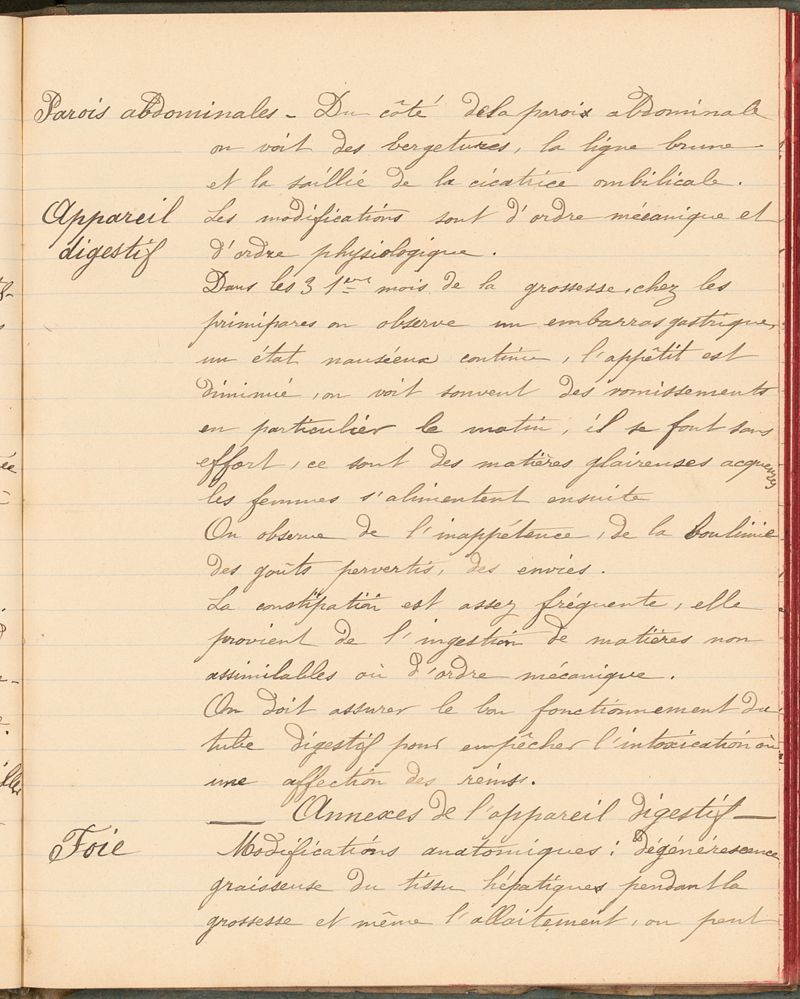 Parois abdominales - Du côté de la paroix abdominale
on voit des vergetures, la ligne brune
et la saillié de la cicatrice ombilicale.
Appareil Les modifications sont d'ordre mécanique et
digestif d'ordre physiologique.
Dans les 3 1ers mois de la grossesse, chez les
primipares on observe un embarras gastrique,
un état nauséeux continu, l'appétit est
diminué, on voit souvent des vomissements
en particulier le matin, il se font sans
effort, ce sont des matières glaireuses acqueuses
les femmes s'alimentent ensuite
On observe de l'inappétence, de la boulimie
des goûts pervertis, des envies.
La constipation est assez fréquente, elle
provient de l'ingestion de matières non
assimilables où d'ordre mécanique.
On doit assurer le bon fonctionnement du
tube digestif pour empêcher l'intoxication où
une affection des reins.
— Annexes de l'appareil digestif —
Foie Modifications anatomiques: Dégénérescence
graisseuse du tissu hépatiques pendant la
grossesse et même l'allaitement, on peut